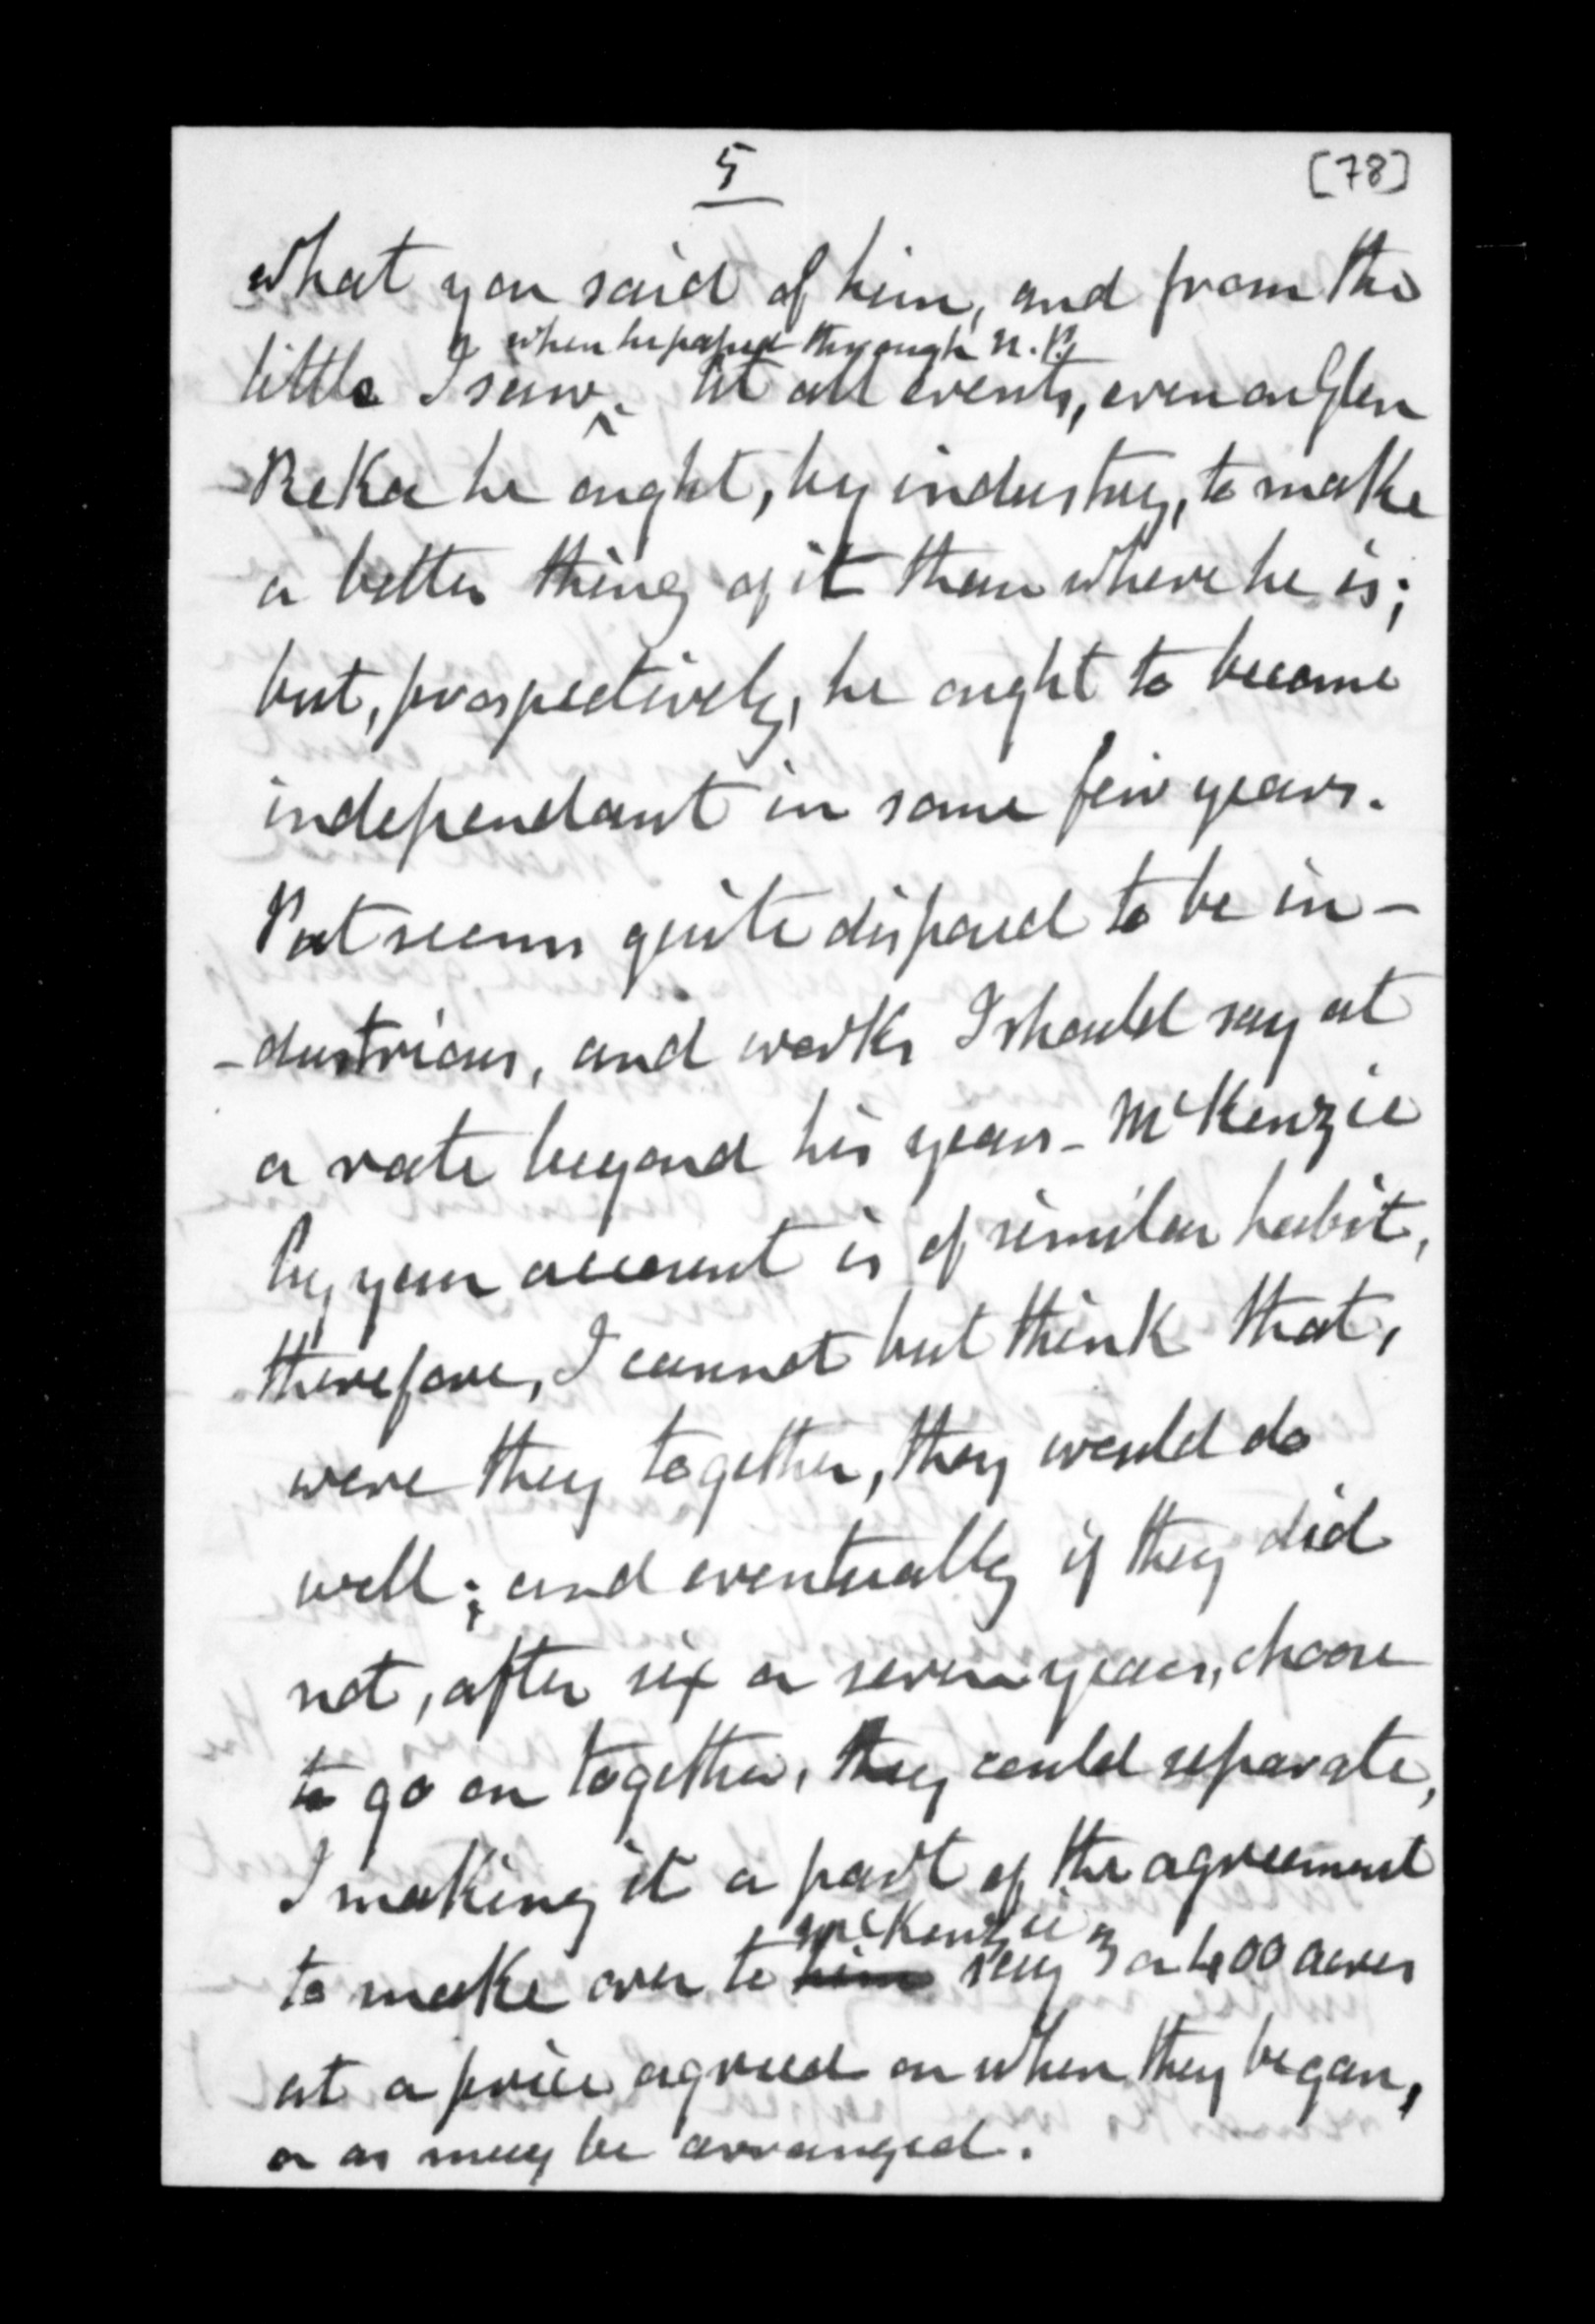 5
[78]
what you said of him, and from the
when he passed through N.P.
little I saw. At all events, even on Glen
Reka he ought, by industry, to make
a better thing of it than where he is;
but, prospectively, he ought to become
independant in some few years.
Pat seems quite disposed to be in-
-dustrious, and works I should say at
a rate beyond his years - McKenzie
by your account is of similar habit,
therefore, I cannot but think that,
were they together, they would do
well; and eventually if they did
not, after six or seven years, choose
to go on together, they could separate,
I making it a part of the agreement
McKenzie
to make over to him say 3 or 400 acres
at a price agreed on when they began,
or as may be arranged.